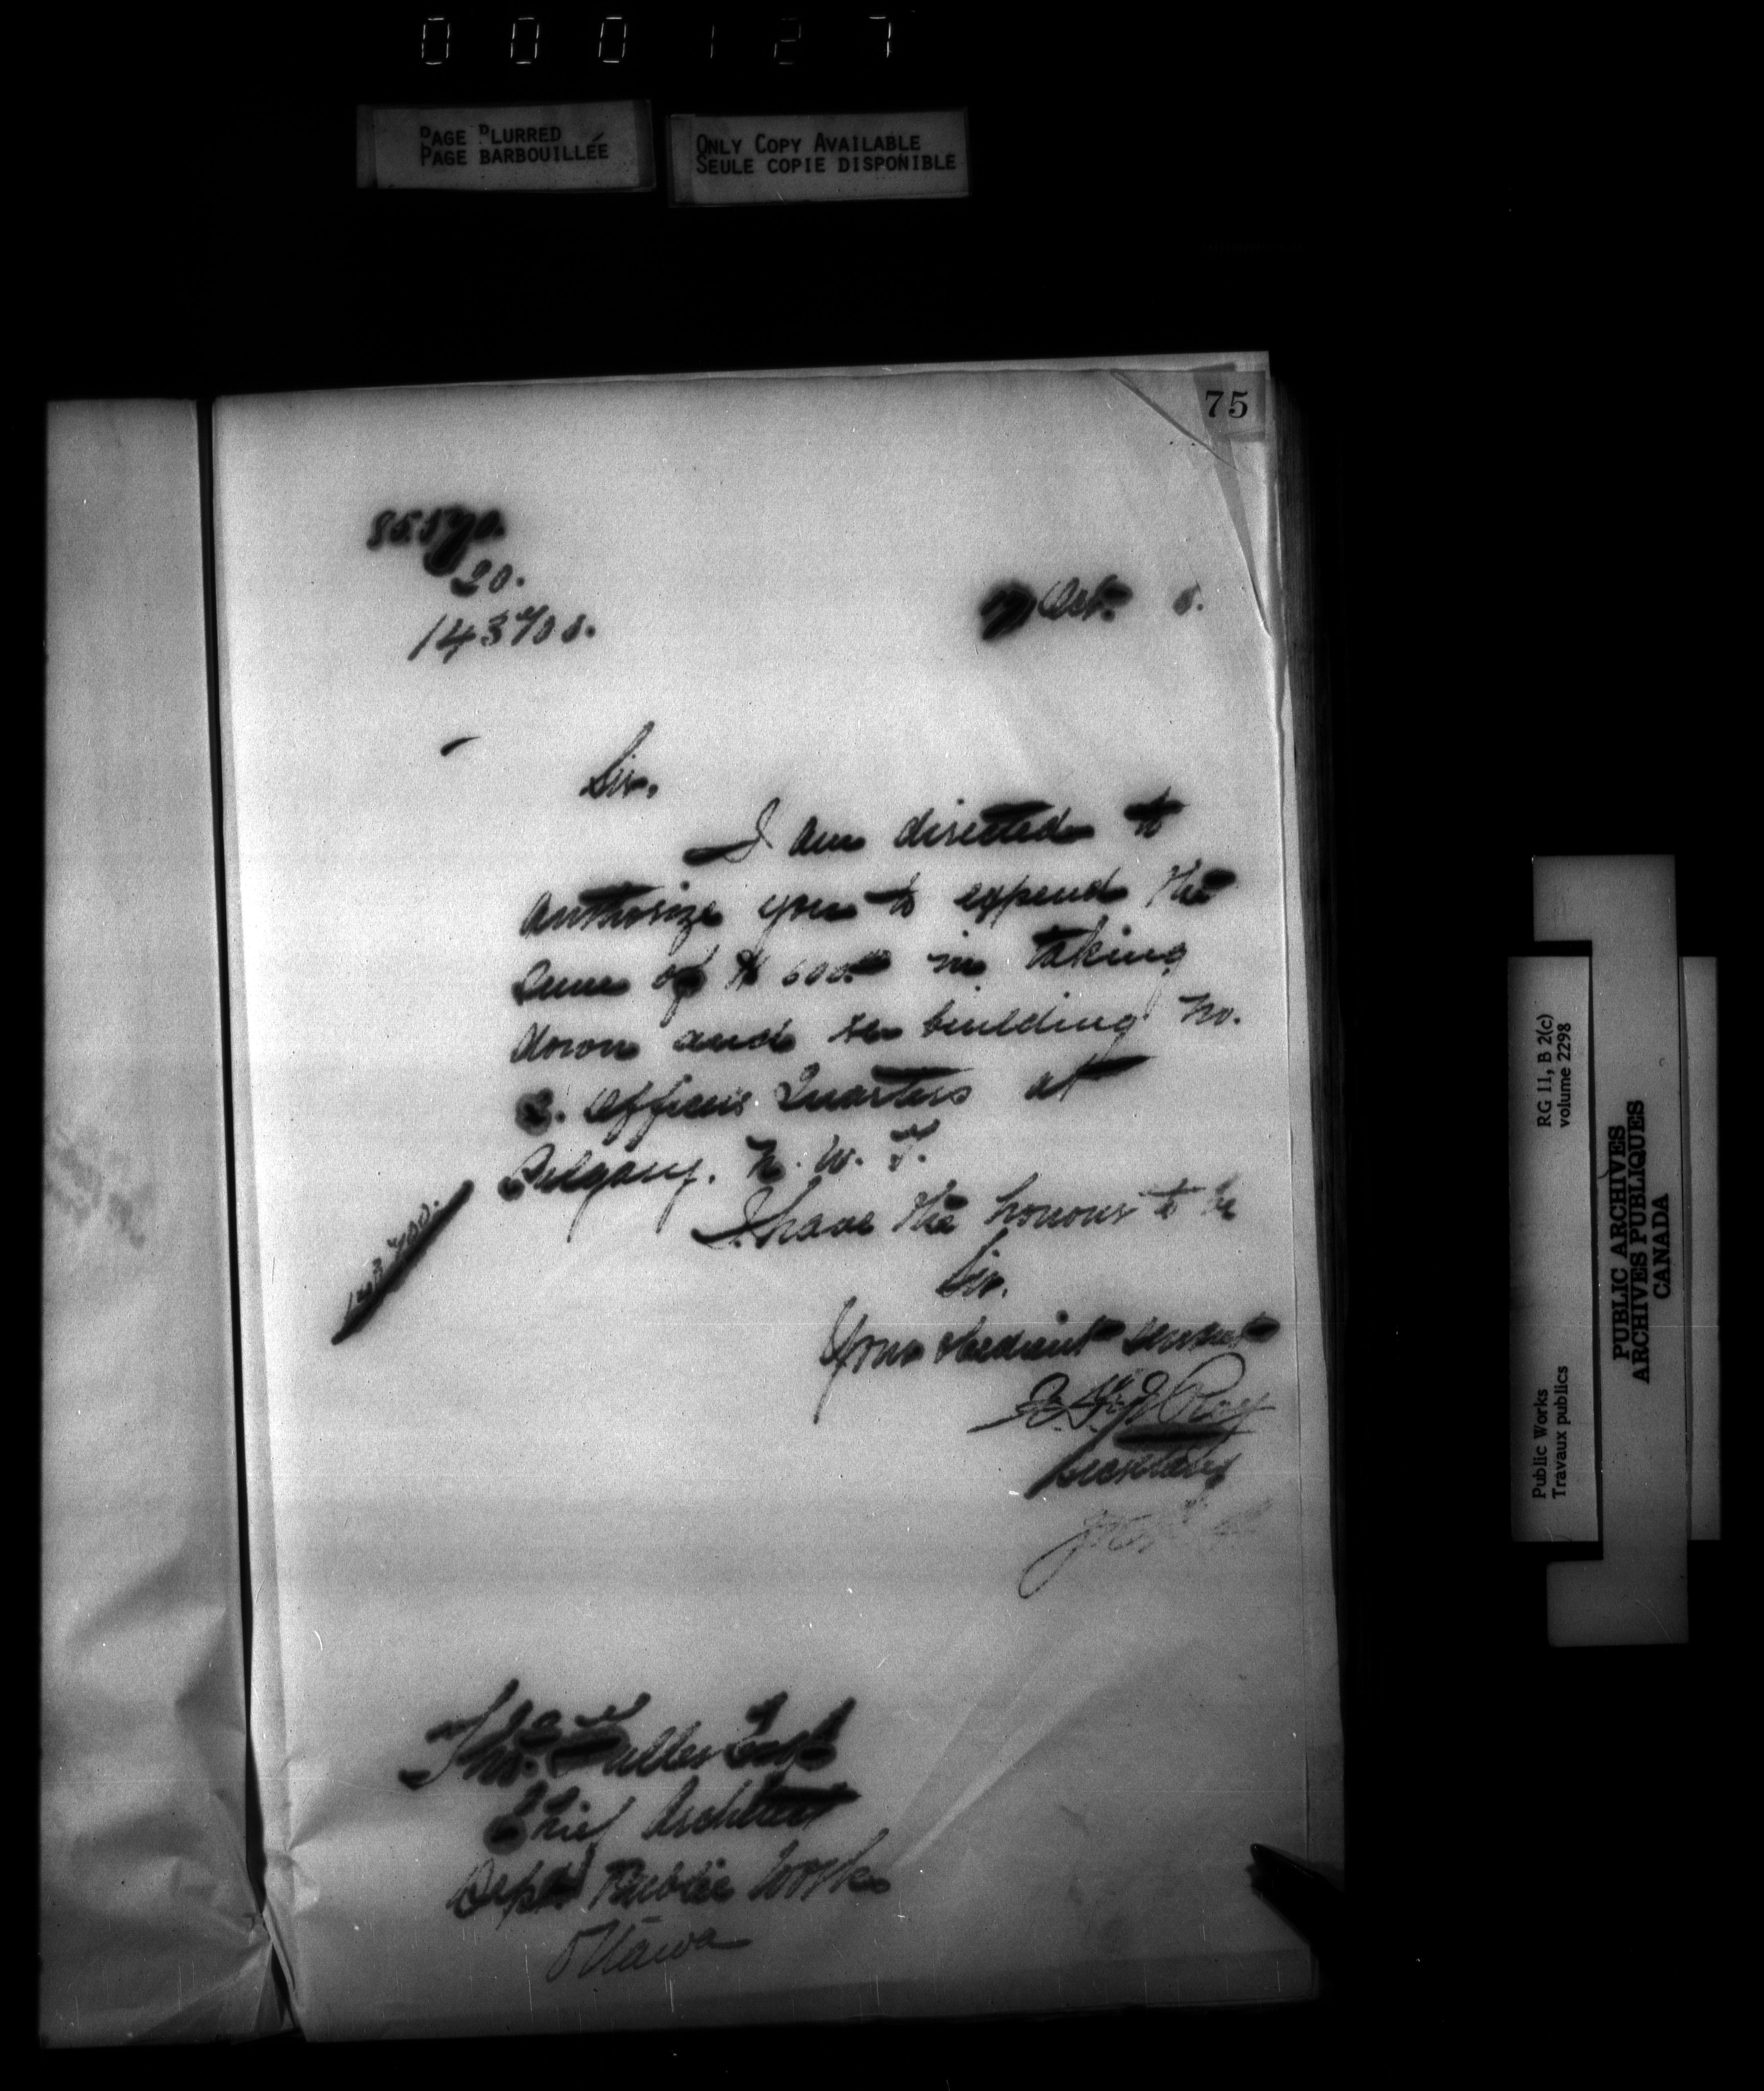 000127
PAGE BLURRED
PAGE BARBOUILLÉE
ONLY COPY AVAILABLE
SEULE COPIE DISPONIBLE
75
20.
143700.
Oct.
Sir,
I am directed to
authorize you to expend the
sum of $600.00 in taking
down and re building No.
2. Officers Quarters at
Calgary. N. W. T.
143700.
I have the honour to be
Sir.
Your obedient servant
Roy
Secretary
Thos. Fuller Esq
Chief Architect
Dept Public Works
Ottawa
Public Works
Travaux publics
RG 11, B 2(c)
volume 2298
PUBLIC ARCHIVES
ARCHIVES PUBLIQUES
CANADA